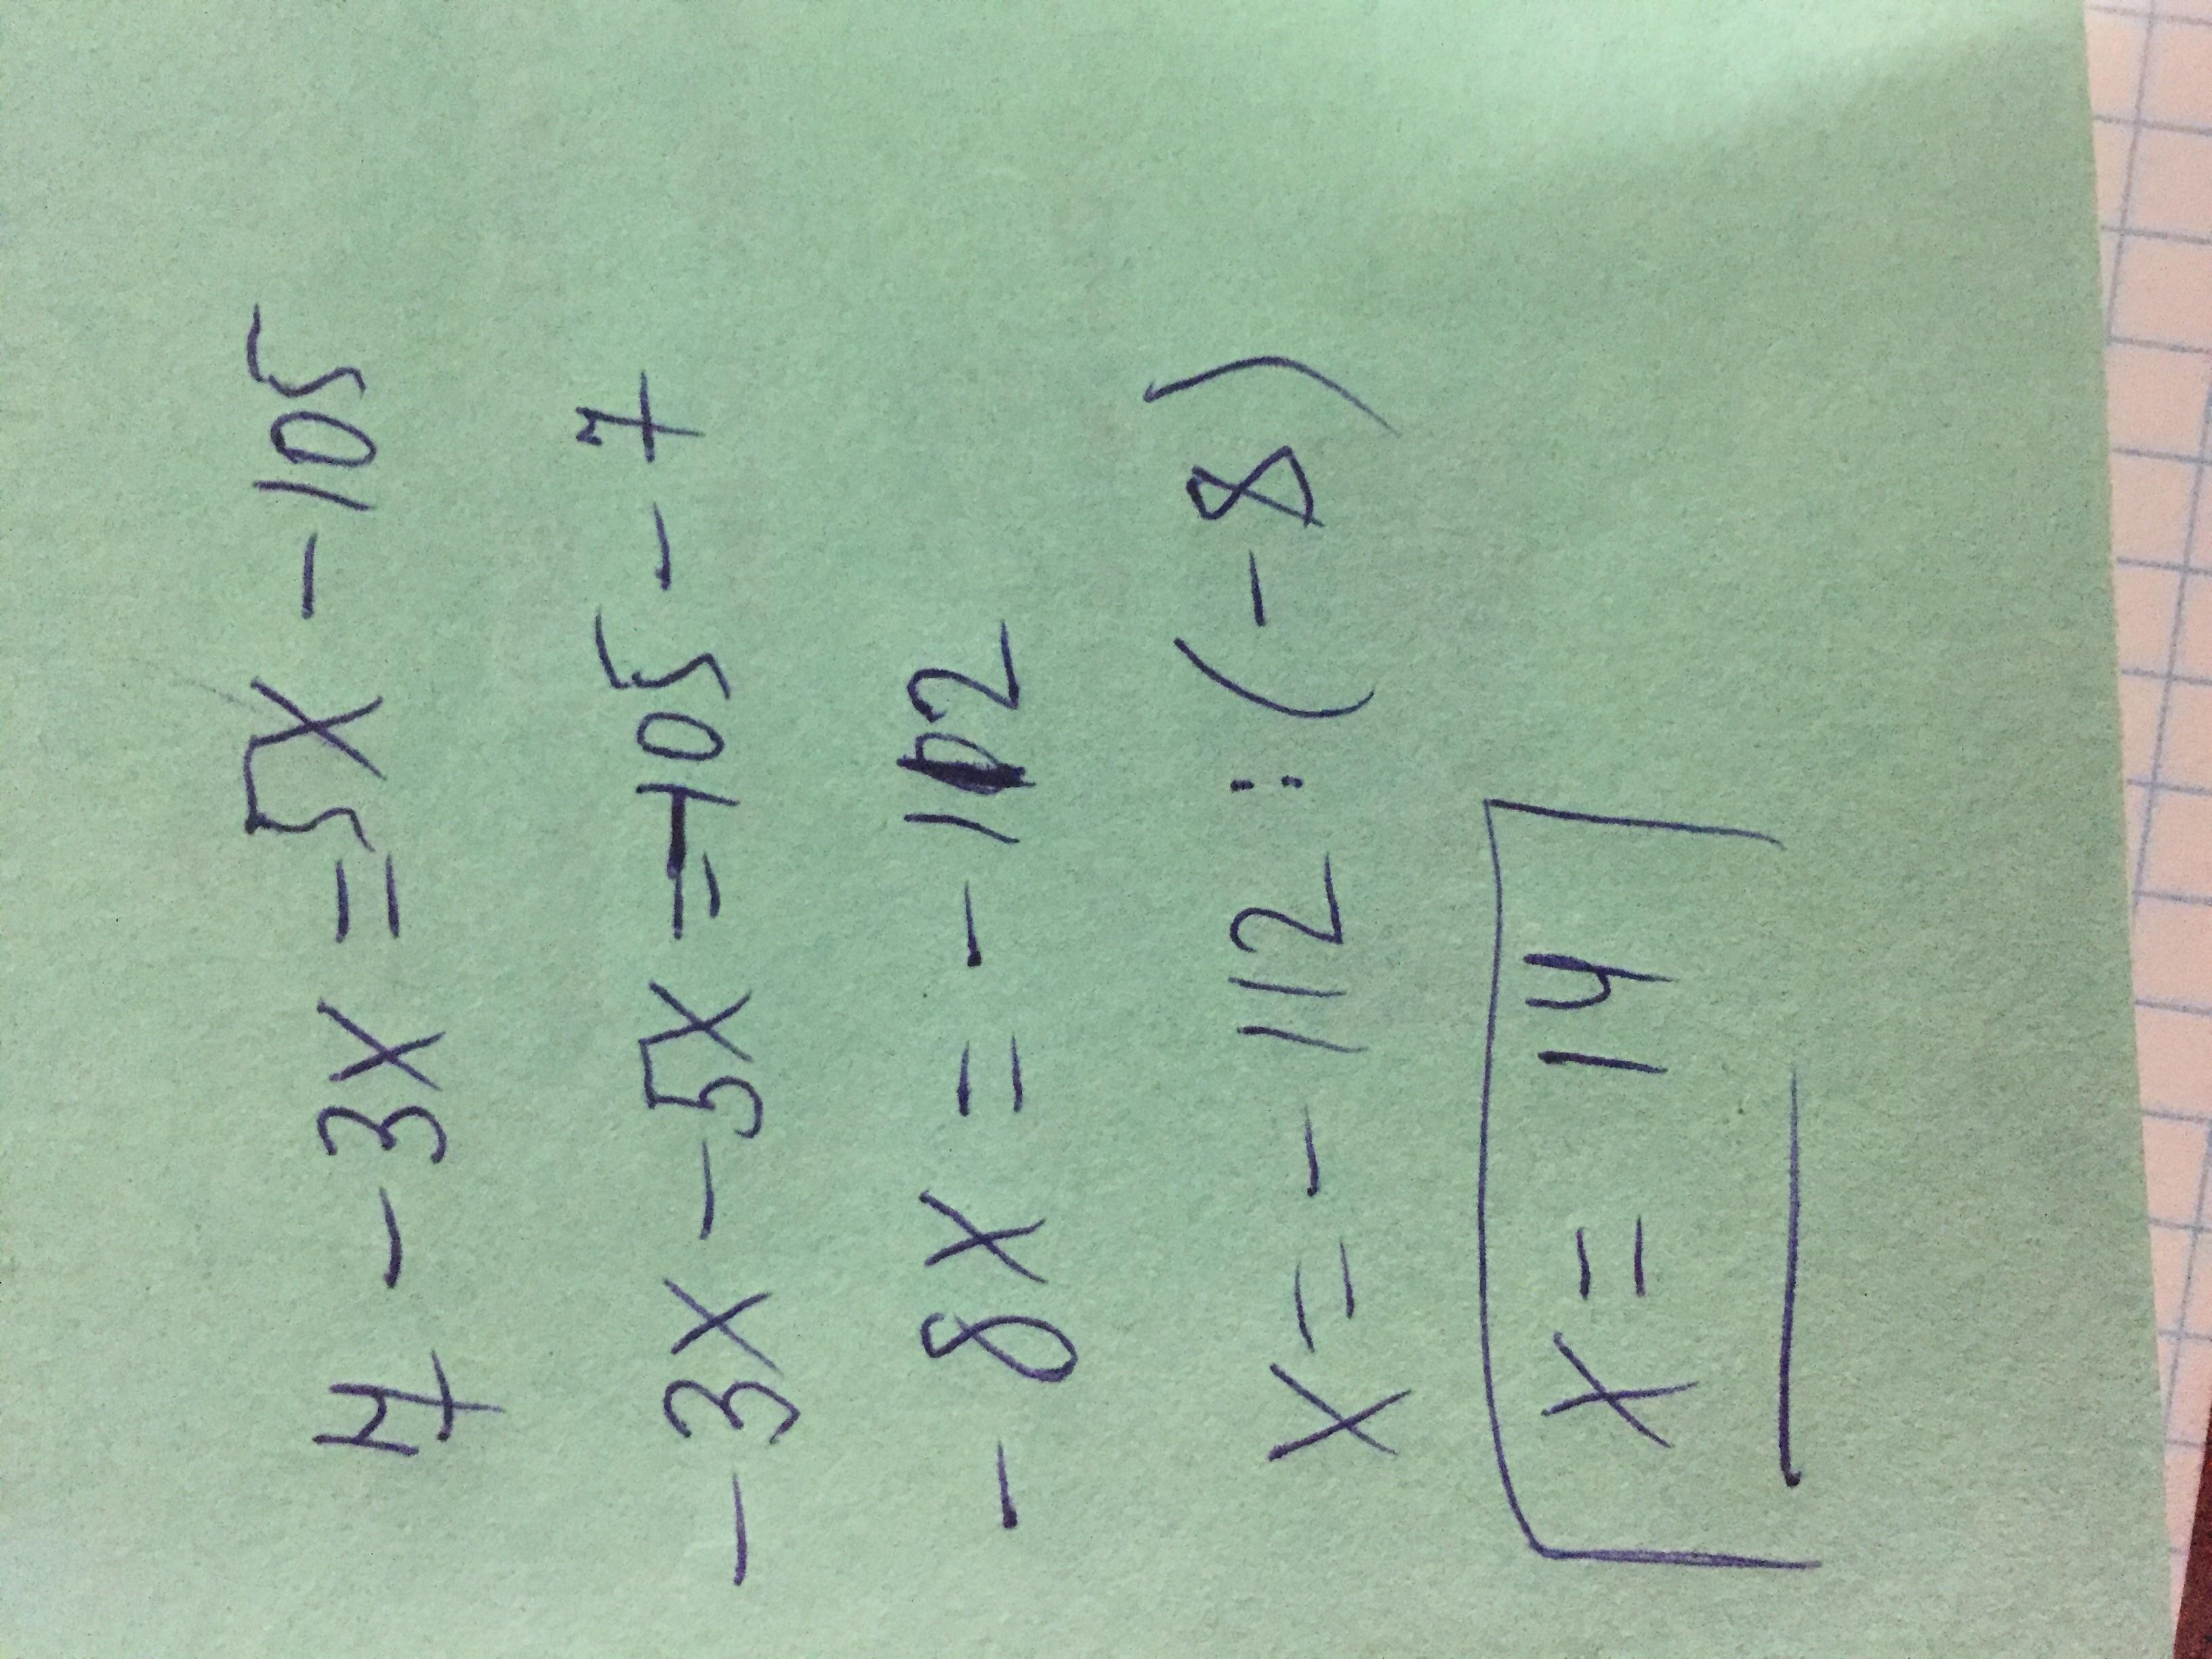 7 - 3x = 5x - 105
-3x - 5x = -105 - 7
-8x = - 112
x = - 112 : (-8)
x = 14